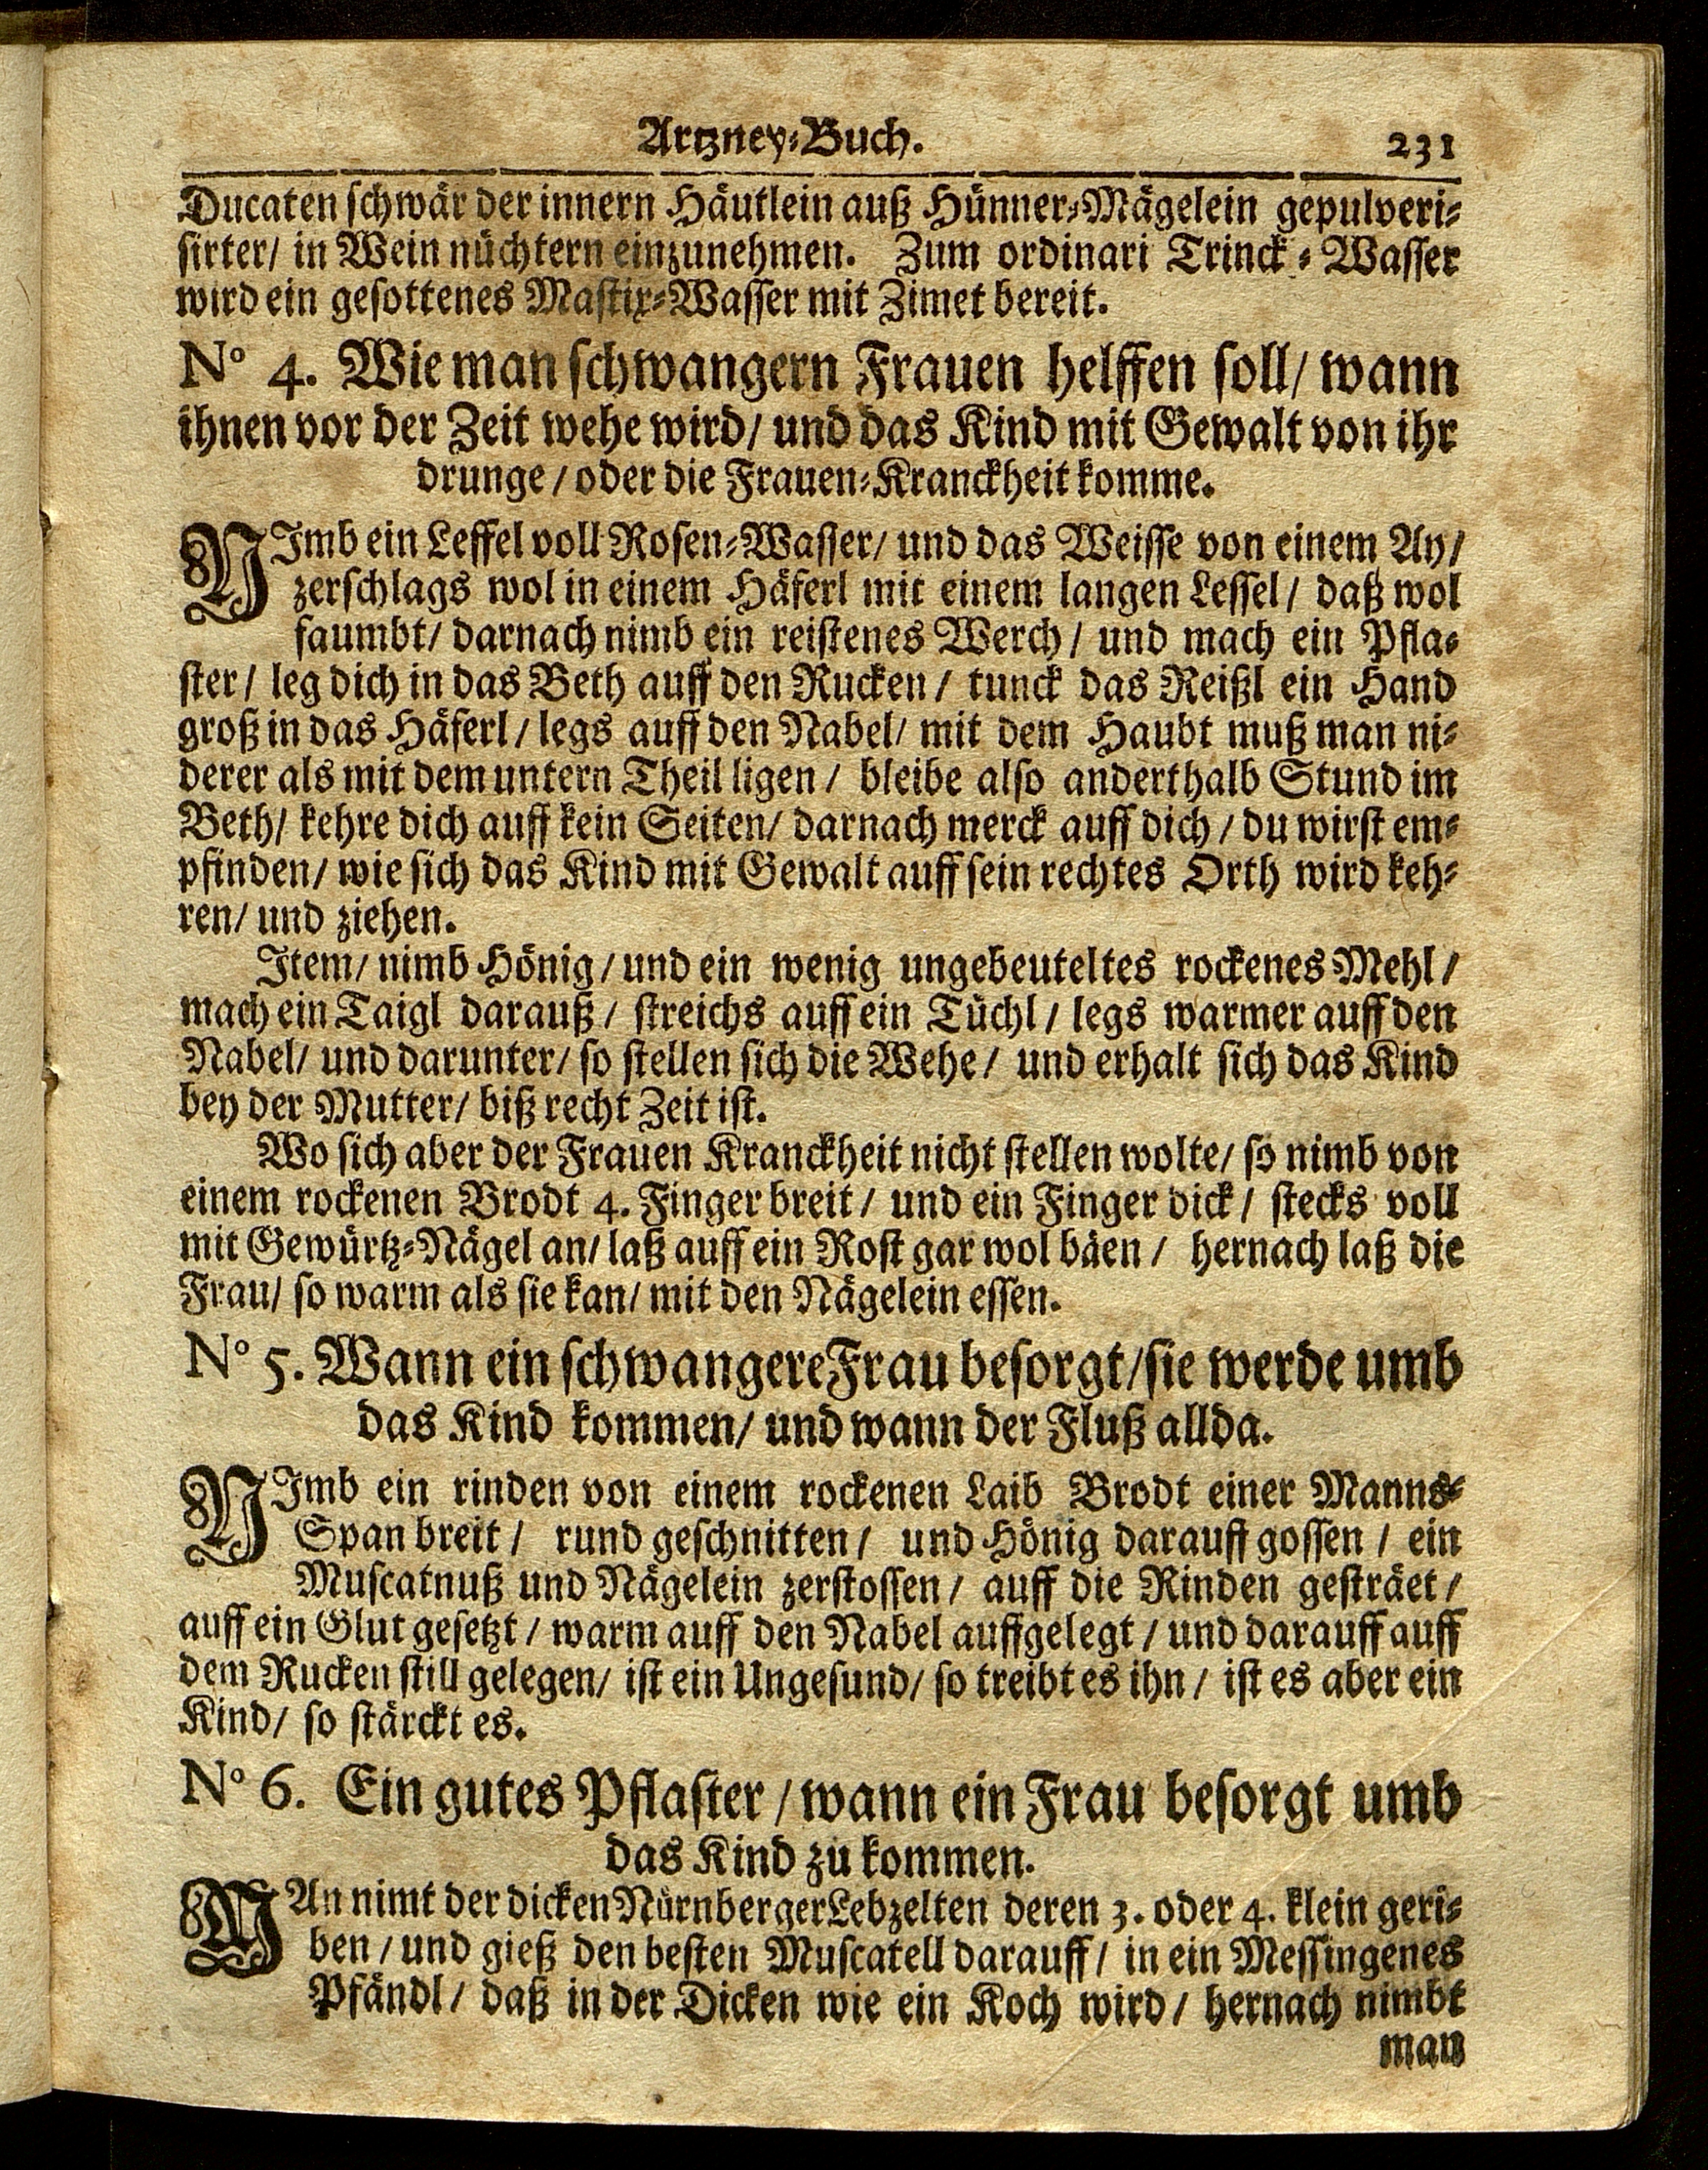 Artzney-Buch. 231
Ducaten schwär der innern Häutlein auß Hünner-Mägelein gepulveri-
sirter/ in Wein nüchtern einzunehmen. Zum ordinari Trinck-Wasser
wird ein gesottenes Mastix-Wasser mit Zimet bereit.
N° 4. Wie man schwangern Frauen helffen soll/ wann
ihnen vor der Zeit wehe wird/ und das Kind mit Gewalt von ihr
drunge/ oder die Frauen-Kranckheit komme.
NImb ein Leffel voll Rosen-Wasser/ und das Weisse von einem Ay/
zerschlags wol in einem Häferl mit einem langen Leffel/ daß wol
faumbt/ darnach nimb ein reistenes Werch/ und mach ein Pfla-
ster/ leg dich in das Beth auff den Rucken/ tunck das Reißl ein Hand
groß in das Häferl/ legs auff den Nabel/ mit dem Haubt muß man ni-
derer als mit dem untern Theil ligen/ bleibe also anderthalb Stund im
Beth/ kehre dich auff kein Seiten/ darnach merck auff dich/ du wirst em-
pfinden/ wie sich das Kind mit Gewalt auff sein rechtes Orth wird keh-
ren/ und ziehen.
Item/ nimb Hönig/ und ein wenig ungebeuteltes rockenes Mehl/
mach ein Taigl darauß/ streichs auff ein Tüchl/ legs warmer auff den
Nabel/ und darunter/ so stellen sich die Wehe/ und erhalt sich das Kind
bey der Mutter/ biß recht Zeit ist.
Wo sich aber der Frauen Kranckheit nicht stellen wolte/ so nimb von
einem rockenen Brodt 4. Finger breit/ und ein Finger dick/ stecks voll
mit Gewürtz-Nägel an/ laß auff ein Rost gar wol bäen/ hernach laß die
Frau/ so warm als sie kan/ mit den Nägelein essen.
N° 5. Wann ein schwangere Frau besorgt/ sie werde umb
das Kind kommen/ und wann der Fluß allda.
NImb ein rinden von einem rockenen Laib Brodt einer Manns-
Span breit/ rund geschnitten/ und Hönig darauff gossen/ ein
Muscatnuß und Nägelein zerstossen/ auff die Rinden gesträet/
auff ein Glut gesetzt/ warm auff den Nabel auffgelegt/ und darauff auff
dem Rucken still gelegen/ ist ein Ungesund/ so treibt es ihn/ ist es aber ein
Kind/ so stärckt es.
N° 6. Ein gutes Pflaster/ wann ein Frau besorgt umb
das Kind zu kommen.
MAn nimt der dicken Nürnberger Lebzelten deren 3. oder 4. klein geri-
ben/ und gieß den besten Muscatell darauff/ in ein Messingenes
Pfändl/ daß in der Dicken wie ein Koch wird/ hernach nimbt
man